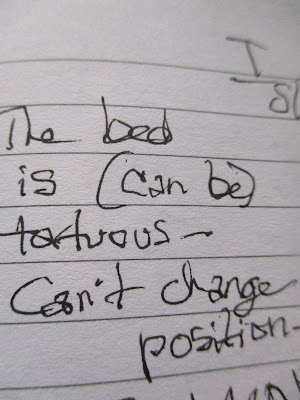 The bed
is (can be)
tortuous –
Can't change
position –